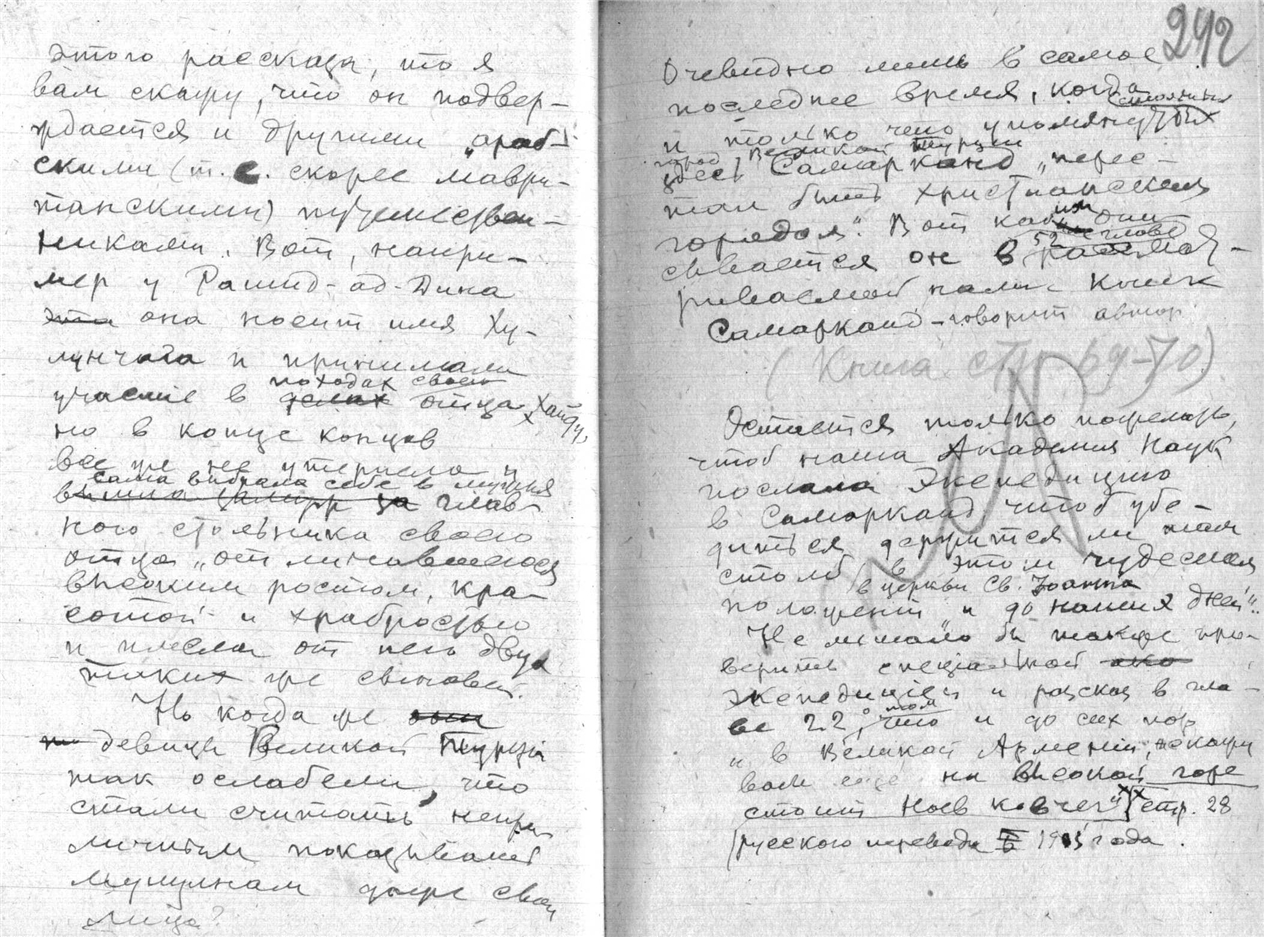 этого рассказа, то я
вам скажу, что он подвер-
ждается и другими „араб-
скими (т. е. скорее маври-
танскими) путешествен-
никами. Вот, напри-
мер у Рашид-ад-Дина
эта она носит имя Ху-
лунчага и принимала
участие в походах своего
делах отца Хайду,
но в конце концов
все же не утерпела и
сама выбрала себе в мужья
за глав-
ного стольника своего
отца „отличавшегося
высоким ростом, кра-
сотой и храбростью
и имела от него двух
таких же сыновей.
Но когда же они
девицы Великой Турции
так ослабели, что
стали считать непри-
личным показывать
мужчинам даже свои
лица?
242
Очевидно лишь в самое
последнее время, когда
столичный
и только что упомянутых
город Великой Турции
здесь Самарканд „перес-
тал быть христианским
городом". Вот каким опи-
52 главе
сывается он в рассмат-
риваемой нами книге
Самарканд - говорит автор
(Книга стр. 69-70)
Остается только пожелать,
чтоб наша Академия Наук
послала Экспедицию
в Самарканд чтоб убе-
диться держится ли там
столб в этом чудесном
в церкви Св. Иоанна
положении и до наших дней".
Не мешало бы также про-
верить специальной
экспедицией и рассказ в гла-
ве 22, о том что и до сих пор
„в Великой Армении, скажу
вам еще, на высокой горе
стоит Ноев ковчег" xx) стр. 28
русского перевода года.